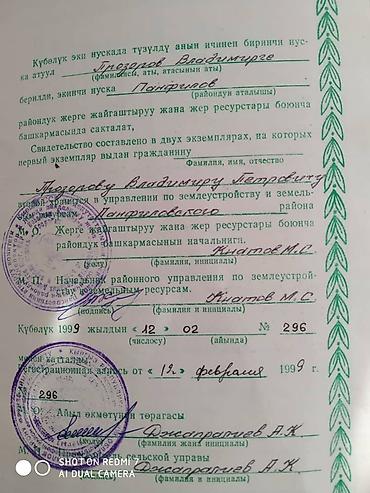 Күбөлүк эки нускада түзүлдү анын ичинен биринчи нус-
ка атуул Прозоров Владимирге
(фамилиясы, аты, атасынын аты)
берилди, экинчи нуска Панфилов
(райондун аталышы)
райондук жерге жайгаштыруу жана жер ресурстары боюнча
башкармасында сакталат,
Свидетельство составлено в двух экземплярах, из которых
первый экземпляр выдан гражданину
Фамилия, имя, отчество
Прозорову Владимиру Петровичу
второй хранится в управлении по землеустройству и земель-
ным ресурсам Панфиловского района
М. О. Жерге жайгаштыруу жана жер ресурстары боюнча
райондук башкармасынын начальниги.
Киатов М.С.
(колу) (фамилия, инициалы)
М. П. Начальник районного управления по землеустрой-
ству и земельным ресурсам.
Киатов М.С.
(подпись) (фамилия и инициалы)
Күбөлүк 1999 жылдын «12» 02 № 296
(числосу) (айында)
менен катталды.
Регистрационная запись от «12» февраля 1999 г.
296
М. О. Айыл өкмөтүнүн төрагасы
Джапралиев А.К
(колу) (фамилия жана инициалы)
сельской управы
Джапралиев А.К
(фамилия и инициалы)
SHOT ON REDMI 7
AI DUAL CAMERA